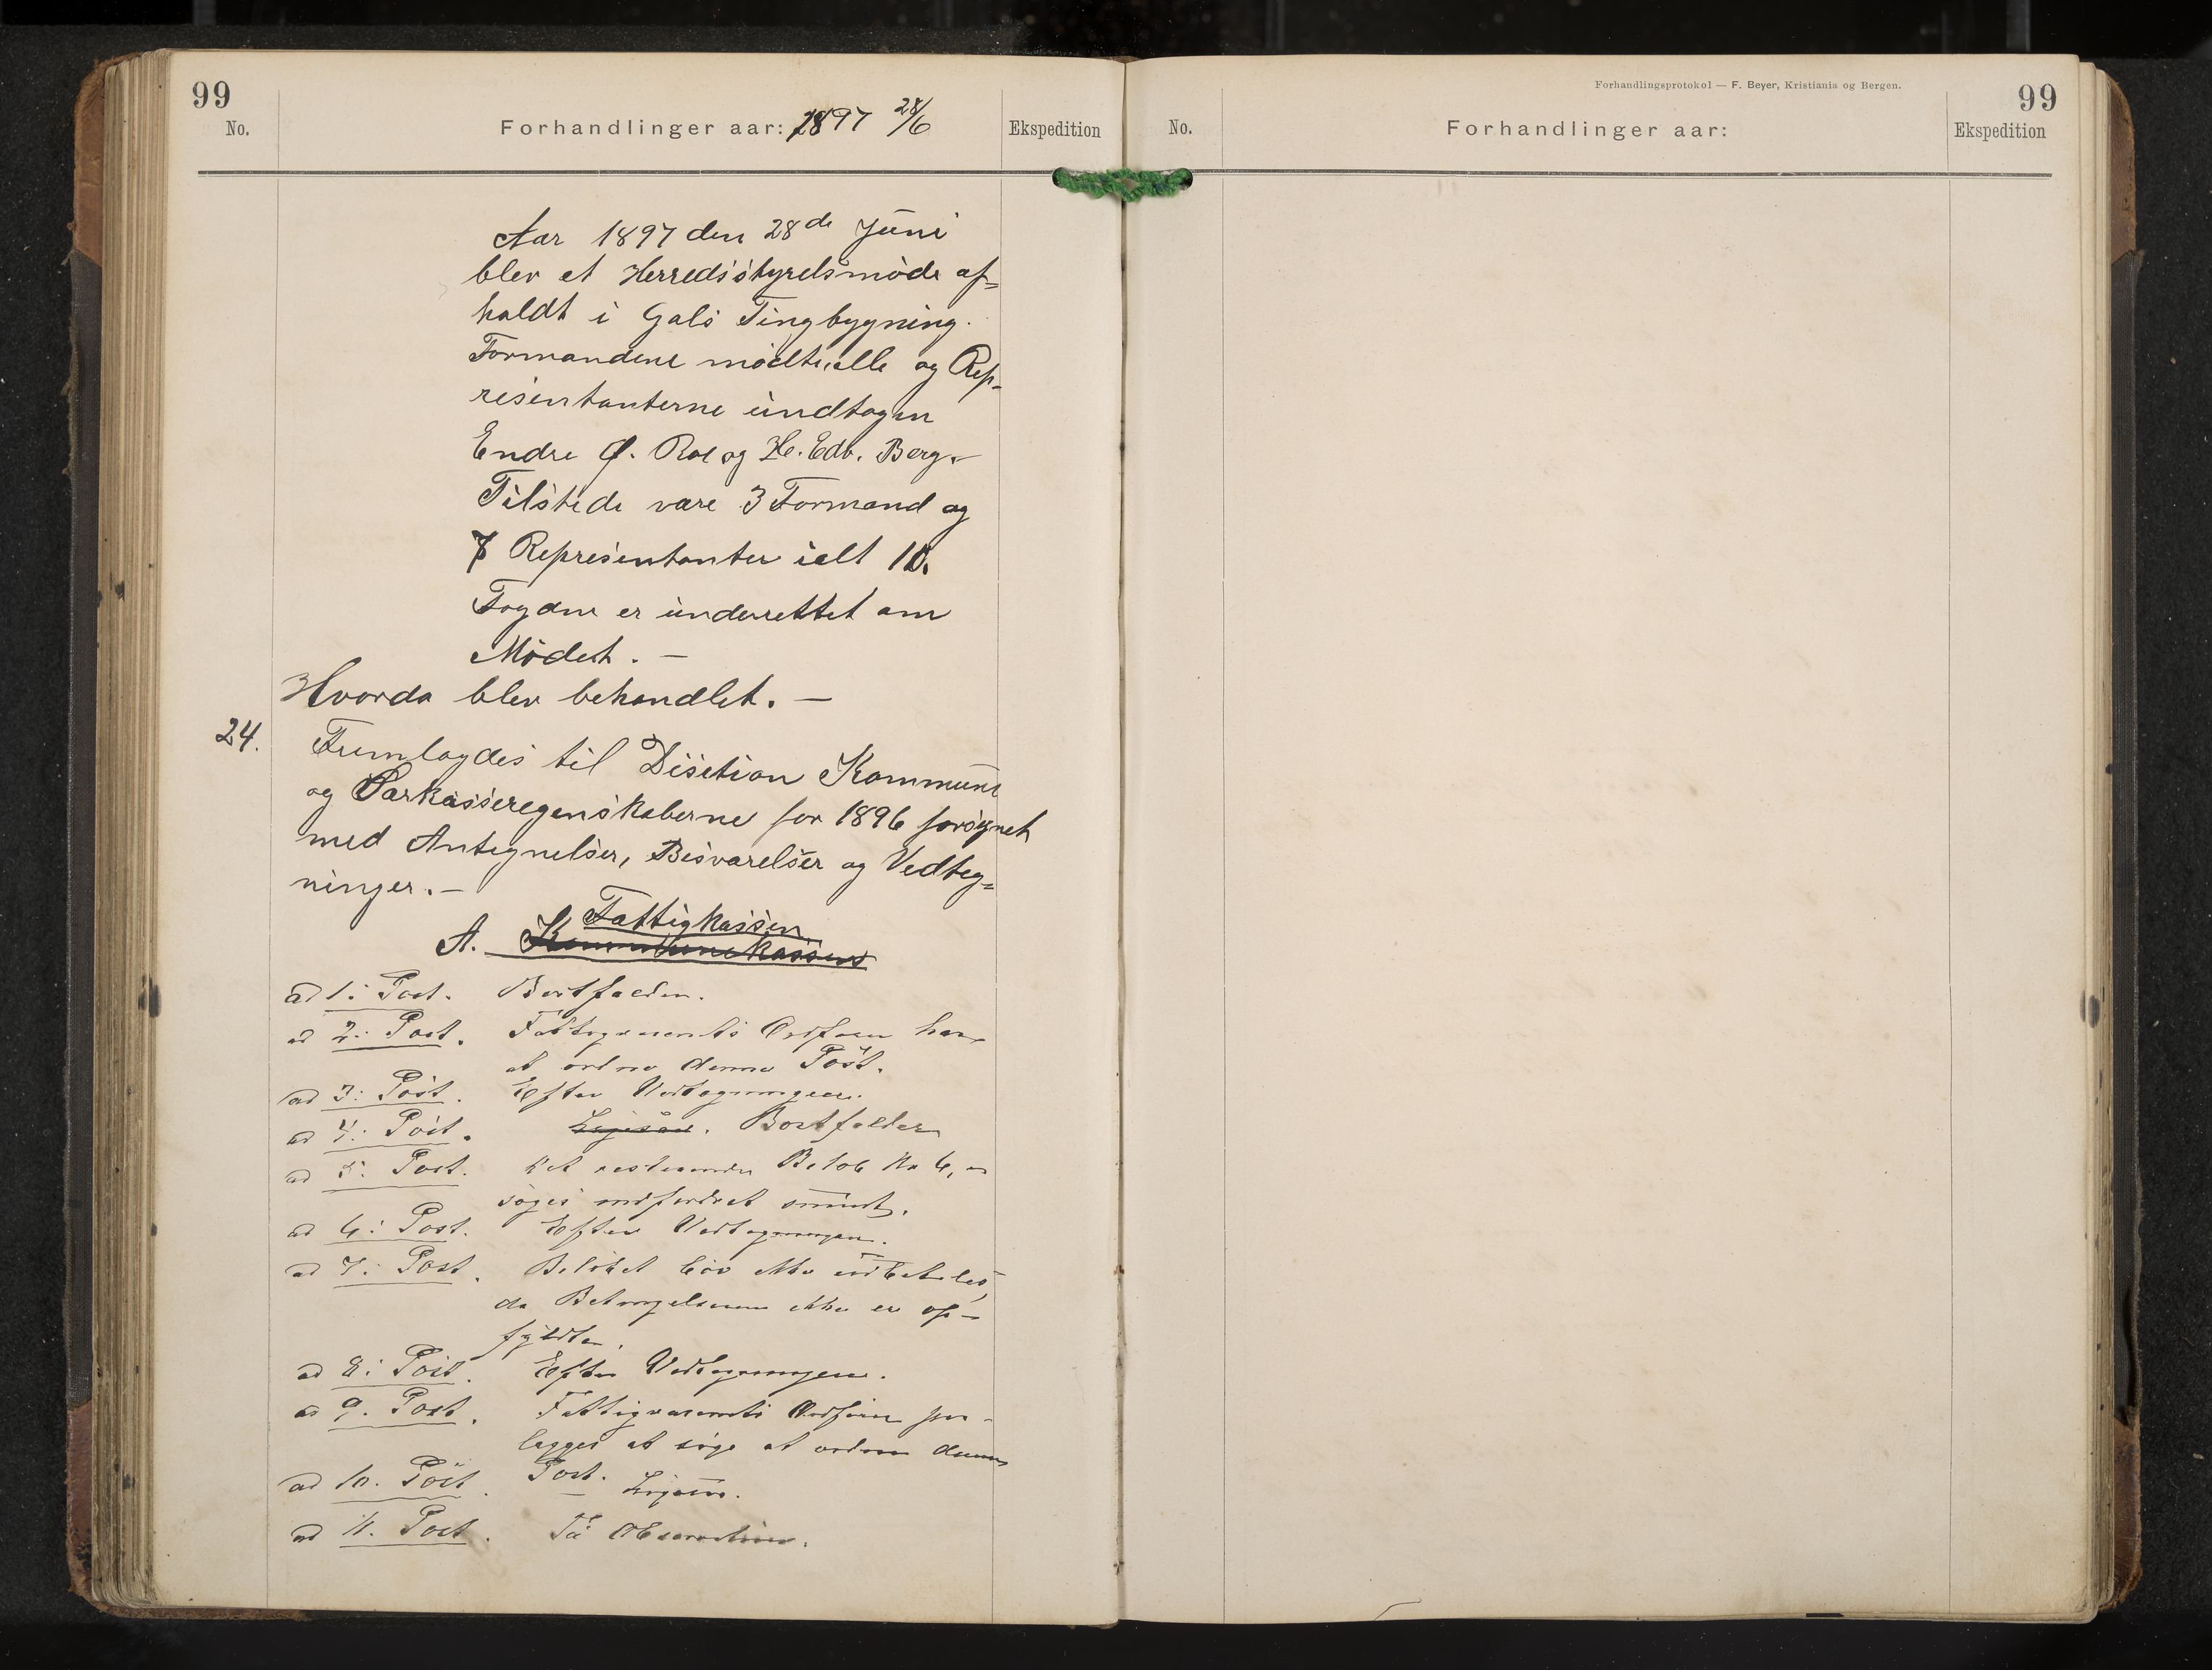 99
No.
Forhandlinger aar: 1897 28/6
Ekspedition
Aar 1897 den 28de Juni
blev et Herredsstyrelsmöde af=
holdt i Gols Tingbygning.
Formændene mödte alle og Rep-
resentanterne undtagen
Endre Ø. Roe og H. Edv. Berg.
Tilstede vare 3 Formænd og
7 Representanter ialt 10.
Fogden er underrettet om
Mödet. —
Hvorda blev behandlet. —
24.
Fremlagdes til Disition Kommune
og Parkasseregenskaberne for 1896 forsynet
med Antegnelser, Besvarelser og Vedteg=
ninger. —
Fattigkassen
A. Kommunekassens
ad 1: Post. Bortfalder.
ad 2: Post. Fattigvæsenets Ordförer har
at ordne denne Post.
ad 3: Post. Efter Vedtegningen.
ad 4: Post. Ligesaa. Bortfalder
ad 5: Post. Det resterende Belöb Kr 6,
söges indfordret snarest.
ad 6: Post. Efter Vedtegningen.
ad 7: Post. Belöbet bör ikke udbetales,
da Betingelserne ikke er op-
fyldte.
ad 8: Post. Efter Vedtegningen.
ad 9. Post. Fattigvæsenets Ordförer paa-
lægges at söge at ordne denne
Post.
ad 10. Post. Ligesaa.
ad 11. Post. Til Observation.
Forhandlingsprotokol — F. Beyer, Kristiania og Bergen.
99
No.
Forhandlinger aar:
Ekspedition